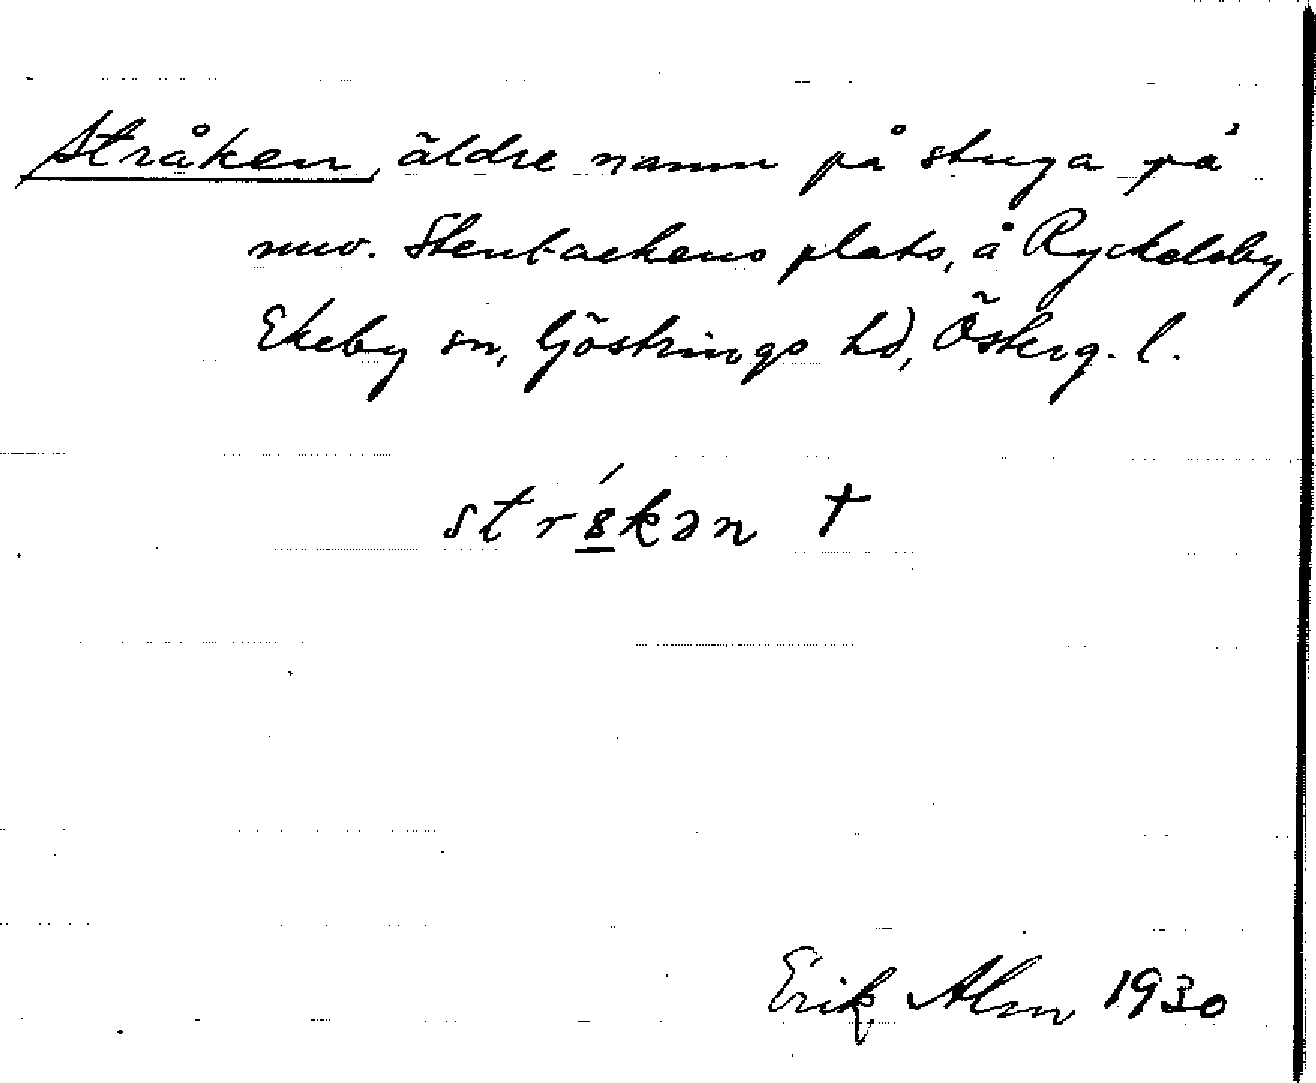 Stråken, äldre namn på stuga på
nuv. Stenbackens plats, å Ryckelsby,
Ekeby sn, Göstrings hd, Österg. l.
strȣ́kən †
Erik Alm 1930